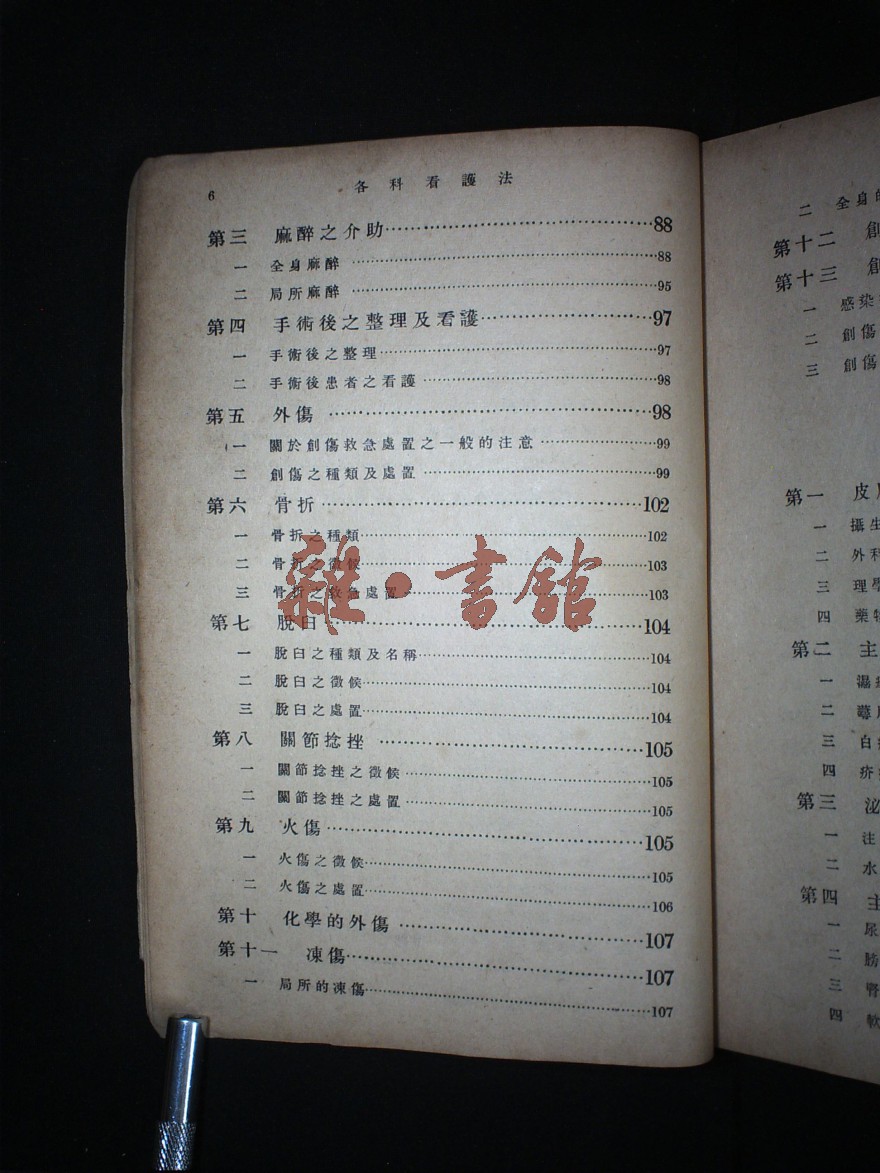 6 各科看護法
第三 麻醉之介助……88
一 全身麻醉……88
二 局所麻醉……95
第四 手術後之整理及看護……97
一 手術後之整理……97
二 手術後患者之看護……98
第五 外傷……98
一 關於創傷救急處置之一般的注意……99
二 創傷之種類及處置……99
第六 骨折……102
一 骨折之種類……102
二 骨折之徵候……103
三 骨折之救急處置……103
雜·書館
第七 脫臼……104
一 脫臼之種類及名稱……104
二 脫臼之徵候……104
三 脫臼之處置……104
第八 關節捻挫……105
一 關節捻挫之徵候……105
二 關節捻挫之處置……105
第九 火傷……105
一 火傷之徵候……105
二 火傷之處置……106
第十 化學的外傷……107
第十一 凍傷……107
一 局所的凍傷……107
二 全身的
第十二 創
第十三 創
一 感染
二 創傷
三 創傷
第一 皮
一 攝生
二 外科
三 理學
四 藥物
第二 主
一 濕
二 蕁
三 白
四 疥
第三 泌
一 注
二 水
第四 主
一 尿
二 膀
三 腎
四 軟